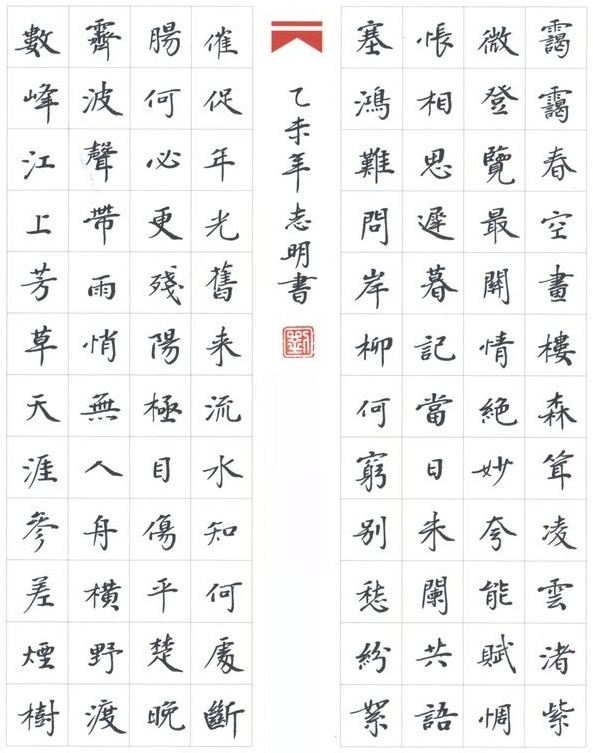 靄靄春空畫樓森耸凌雲渚紫
微登覽最關情絕妙夸能賦惆
悵相思遲暮記當日朱闌共語
塞鴻難問岸柳何窮別愁紛絮
催促年光舊来流水知何處斷
腸何必更殘陽極目傷平楚晚
霽波聲帶雨悄無人舟橫野渡
數峰江上芳草天涯參差煙樹
乙未年志明書
劉